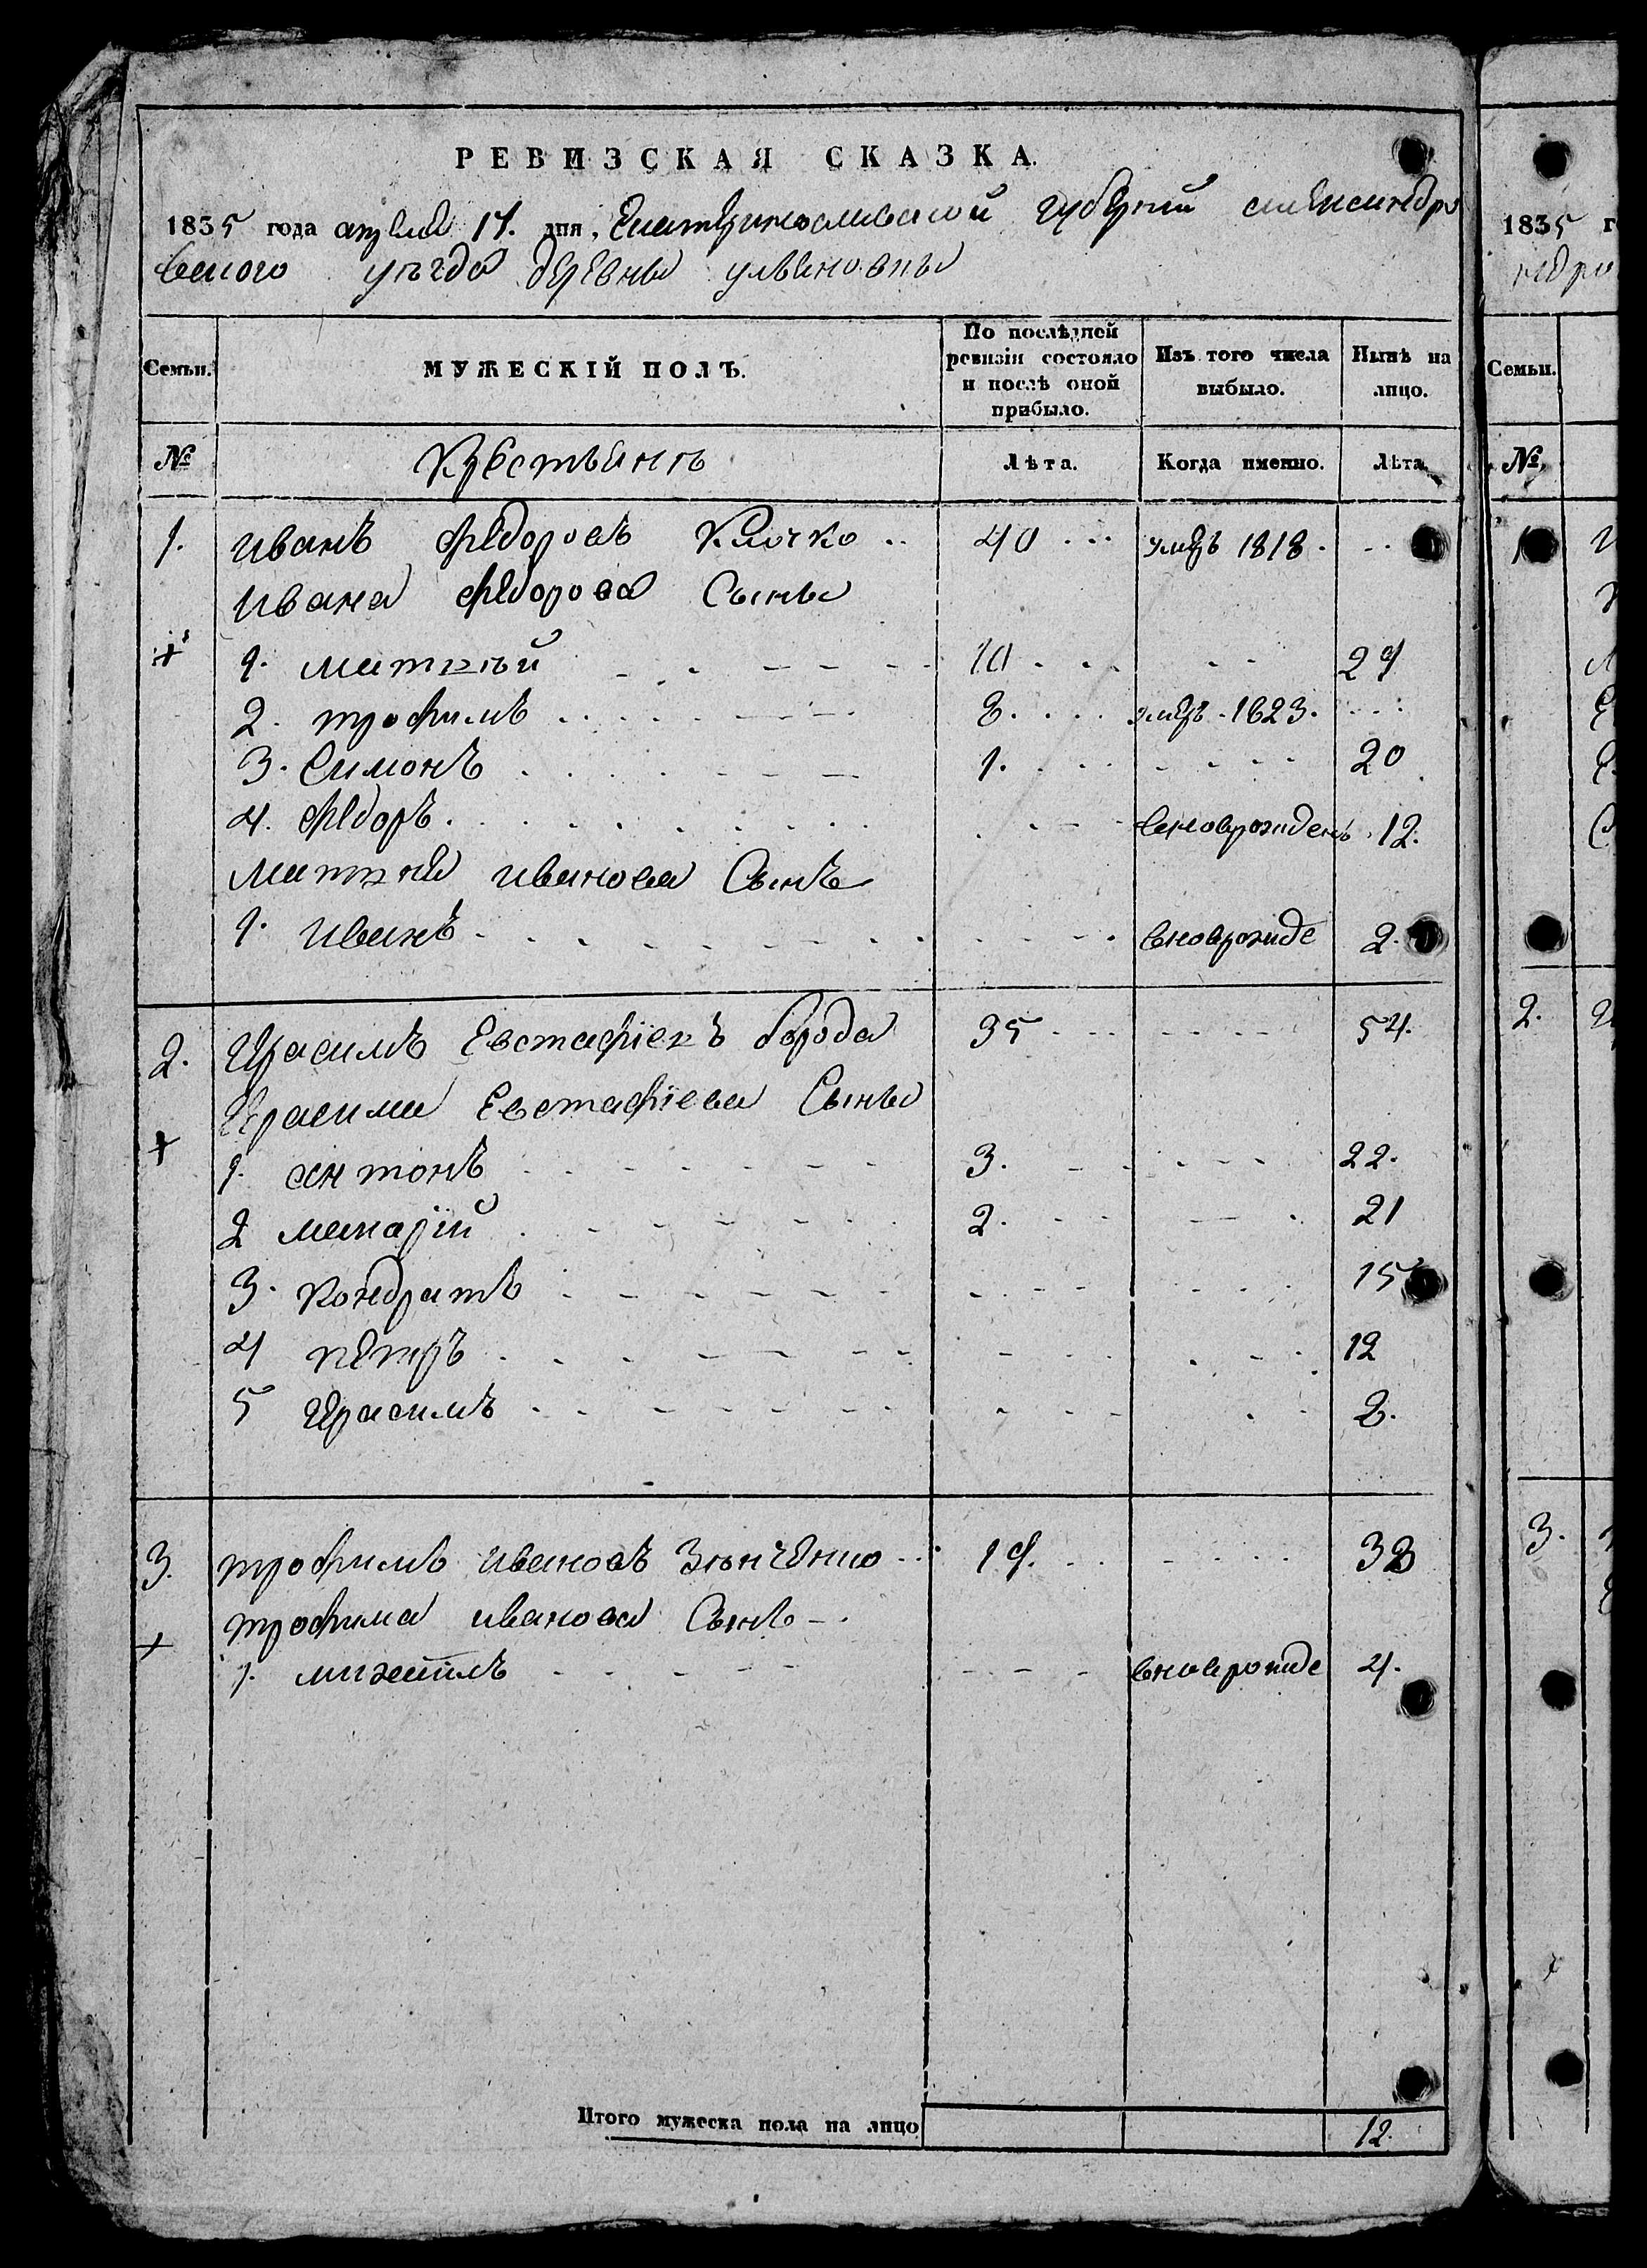 РЕВИЗСКАЯ СКАЗКА.
1835 года апреля 17. дня, Екатеринославской губернии александро
вского уезда деревны ульяновны
Семьи.
МУЖЕСКІЙ ПОЛЪ.
По послѣдней ревизіи состояло и послѣ оной прибыло.
Изъ того числа выбыло.
Нынѣ на лицо.
№
Крестьянъ
Лѣта.
Когда именно.
Лѣта.
1. иванъ федоровъ Клочко .. 40 ... умеръ 1818. ..
ивана федорова Сыны
+ 1. матвъй 10 29
2. трофимъ 8. умеръ. 1823.
3. Симонъ 1. 20
4. федоръ. вновьрожденъ. 12.
матвея иванова Сынъ
1. иванъ вноврожде 2.
2. Герасимъ Евстафіевъ борода 35 54.
Герасима Евстафіева Сыны
+ 1. антонъ 3. 22.
2 макарій 2. 21
3. кондратъ 15
4 петръ 12
5 Герасимъ 8.
3. трофимъ ивановъ Зѣнченко 19. 38
трофима иванова Сынъ
+ 1. михаилъ вноврожде 4.
Итого мужеска пола на лицо 12.
1835 г
Семьи.
№
1
2.
3.